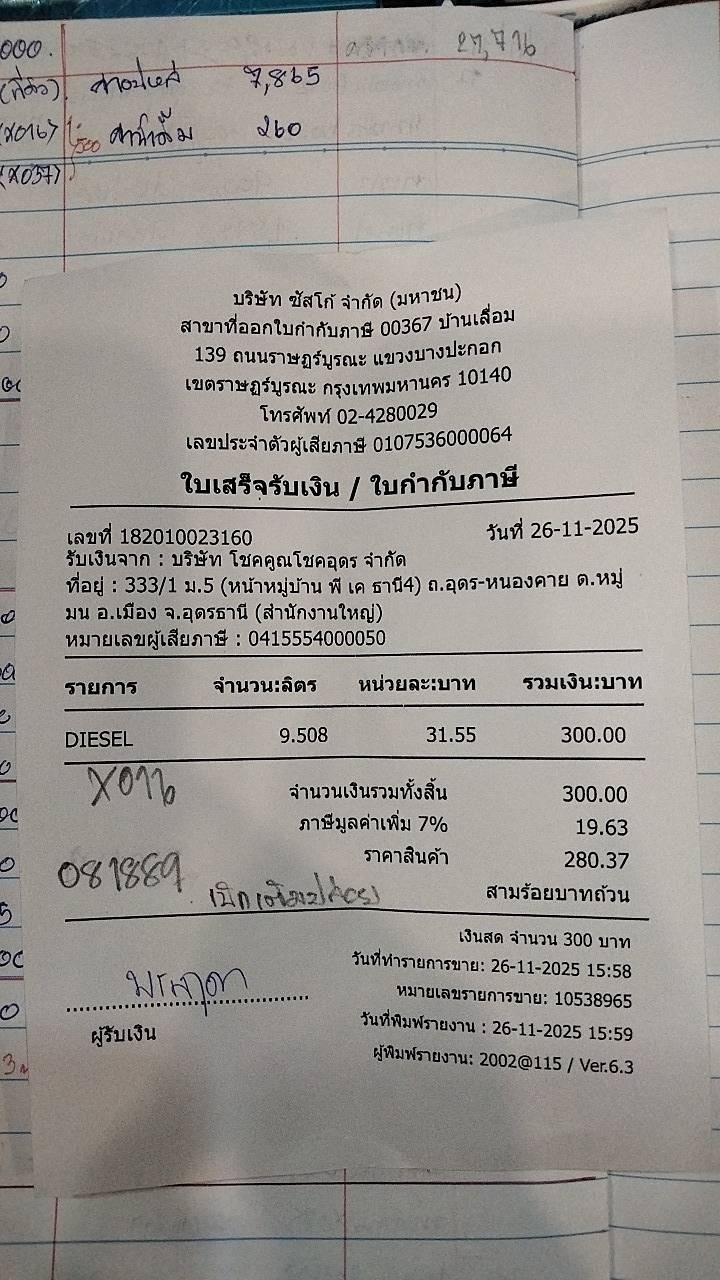 000.
27,716
7,865
(X016) 1,500
260
(X037)
บริษัท ซัสโก้ จำกัด (มหาชน)
สาขาที่ออกใบกำกับภาษี 00367 บ้านเลื่อม
139 ถนนราษฎร์บูรณะ แขวงบางปะกอก
เขตราษฎร์บูรณะ กรุงเทพมหานคร 10140
โทรศัพท์ 02-4280029
เลขประจำตัวผู้เสียภาษี 0107536000064
ใบเสร็จรับเงิน / ใบกำกับภาษี
เลขที่ 182010023160 วันที่ 26-11-2025
รับเงินจาก : บริษัท โชคคูณโชคอุดร จำกัด
ที่อยู่ : 333/1 ม.5 (หน้าหมู่บ้าน พี เค ธานี4) ถ.อุดร-หนองคาย ต.หมู่
มน อ.เมือง จ.อุดรธานี (สำนักงานใหญ่)
หมายเลขผู้เสียภาษี : 0415554000050
รายการ จำนวน:ลิตร หน่วยละ:บาท รวมเงิน:บาท
DIESEL 9.508 31.55 300.00
X016
จำนวนเงินรวมทั้งสิ้น 300.00
ภาษีมูลค่าเพิ่ม 7% 19.63
081889
ราคาสินค้า 280.37
สามร้อยบาทถ้วน
เงินสด จำนวน 300 บาท
วันที่ทำรายการขาย: 26-11-2025 15:58
หมายเลขรายการขาย: 10538965
วันที่พิมพ์รายงาน : 26-11-2025 15:59
ผู้รับเงิน
ผู้พิมพ์รายงาน: 2002@115 / Ver.6.3